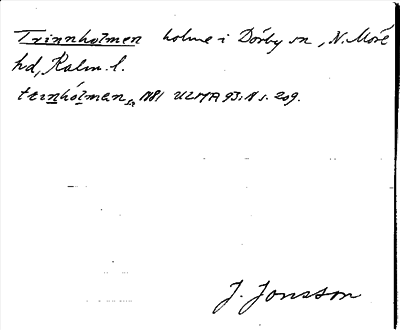 Trinnholmen holme i Dörby sn, N. Möre
hd, Kalm. l.
trinhólmen, 1881 ULMA 93:11 s. 209.
J. Jonsson